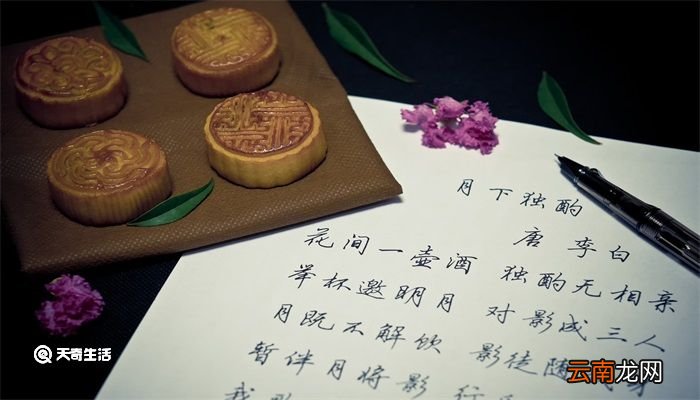 月下独酌
唐 李白
花间一壶酒 独酌无相亲
举杯邀明月 对影成三人
月既不解饮 影徒随
暂伴月将影
天奇生活
云南龙网